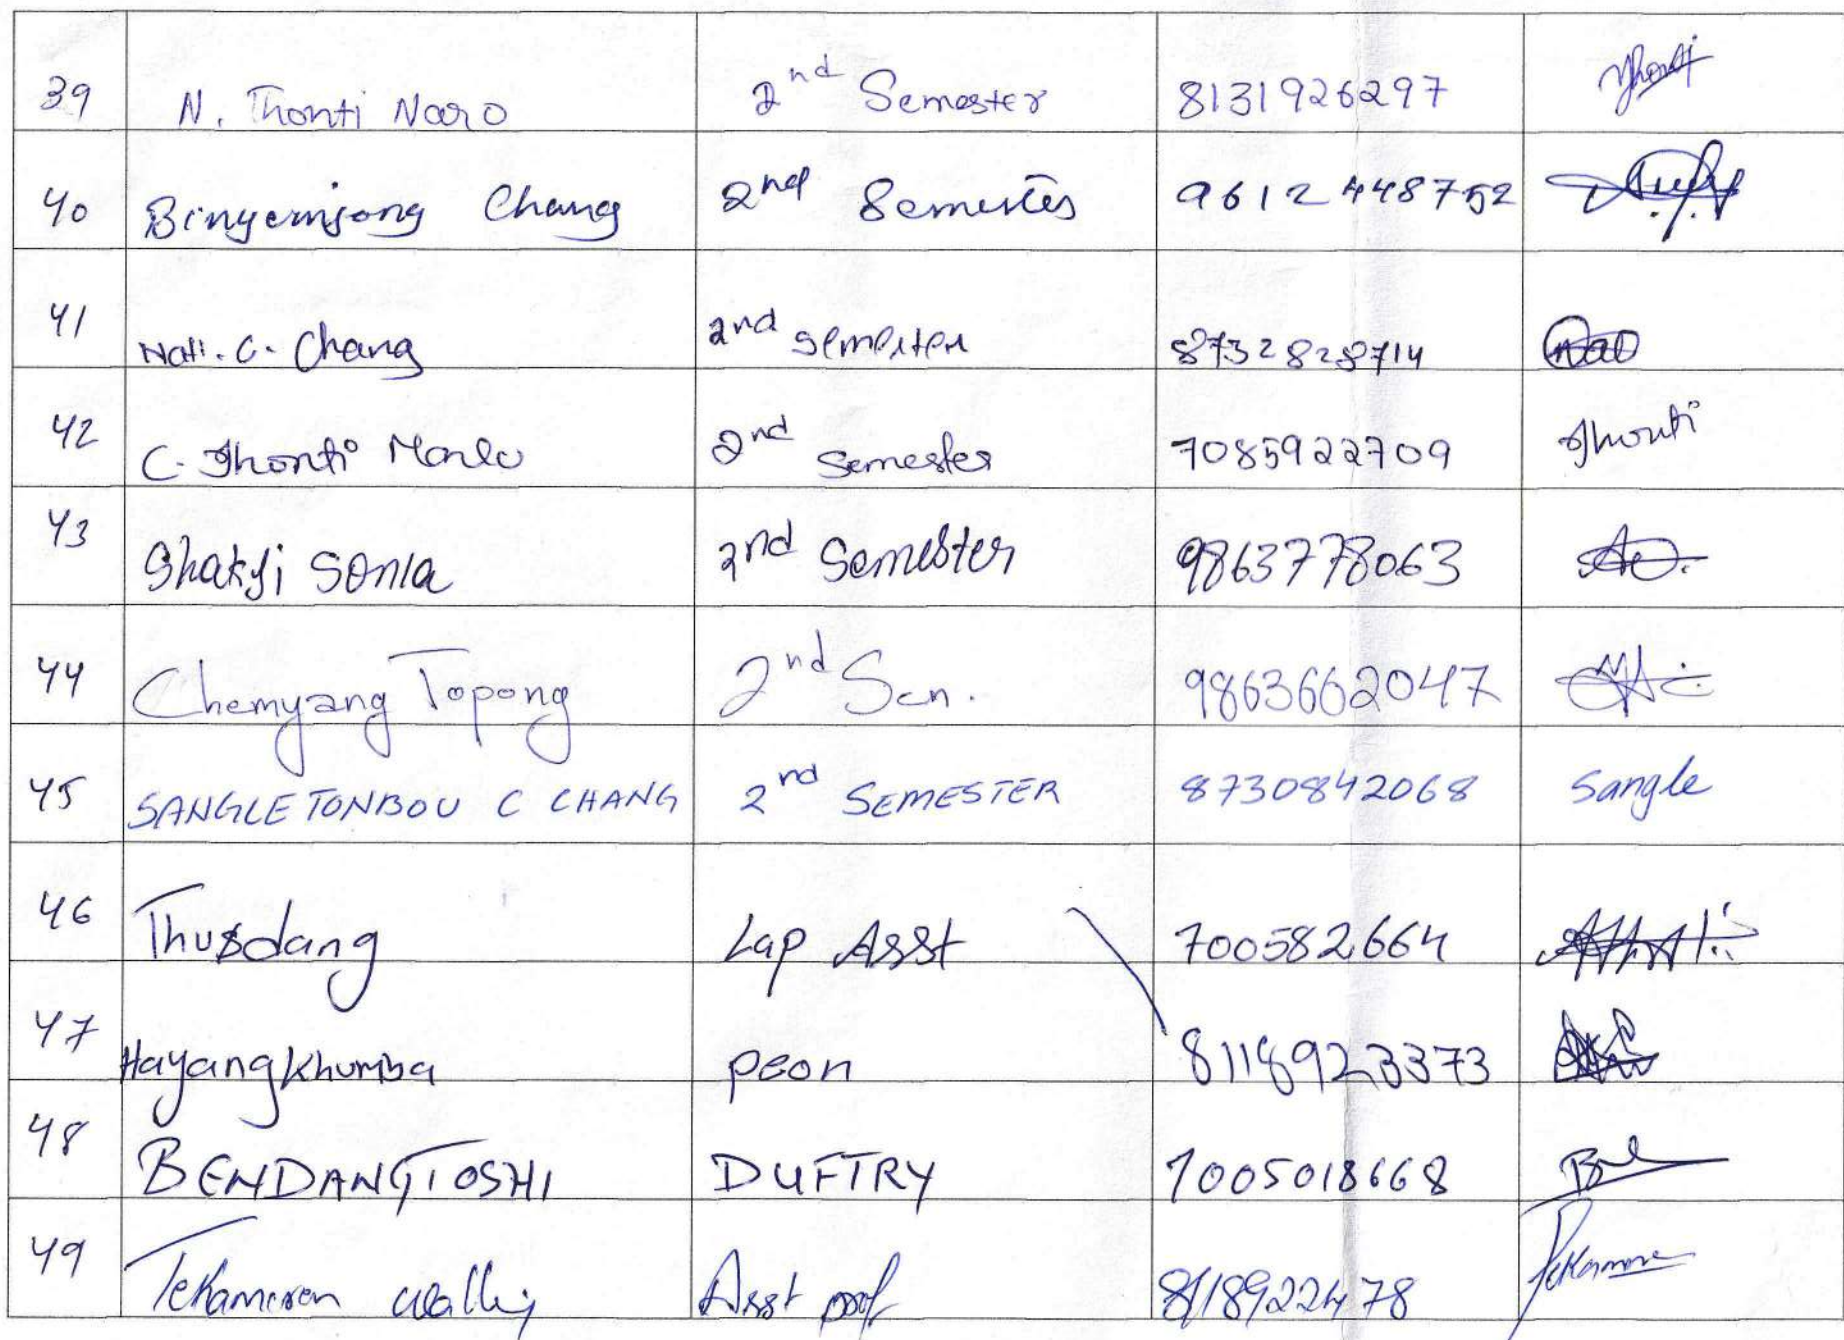 39 N. Thonti Naro 2nd Semester 8131926297 Thonti
40 Binyemjong Chang 2nd Semester 9612448752
41 Nati. C. Chang 2nd semester 8732828714 Nat
42 C. Thonti Monlo 2nd Semester 7085922709 Thonti
43 Shakji Sonla 2nd Semester 9863778063
44 Chemyang Topong 2nd Sem. 9863662047
45 SANGLETONBOU C CHANG 2nd SEMESTER 8730842068 Sangle
46 Thusdang Lap Asst 700582664
47 Hayangkhumba peon 8118923373
48 BENDANGTOSHI DUFTRY 7005018668
49 Tekameren walling Asst prof 8118922478